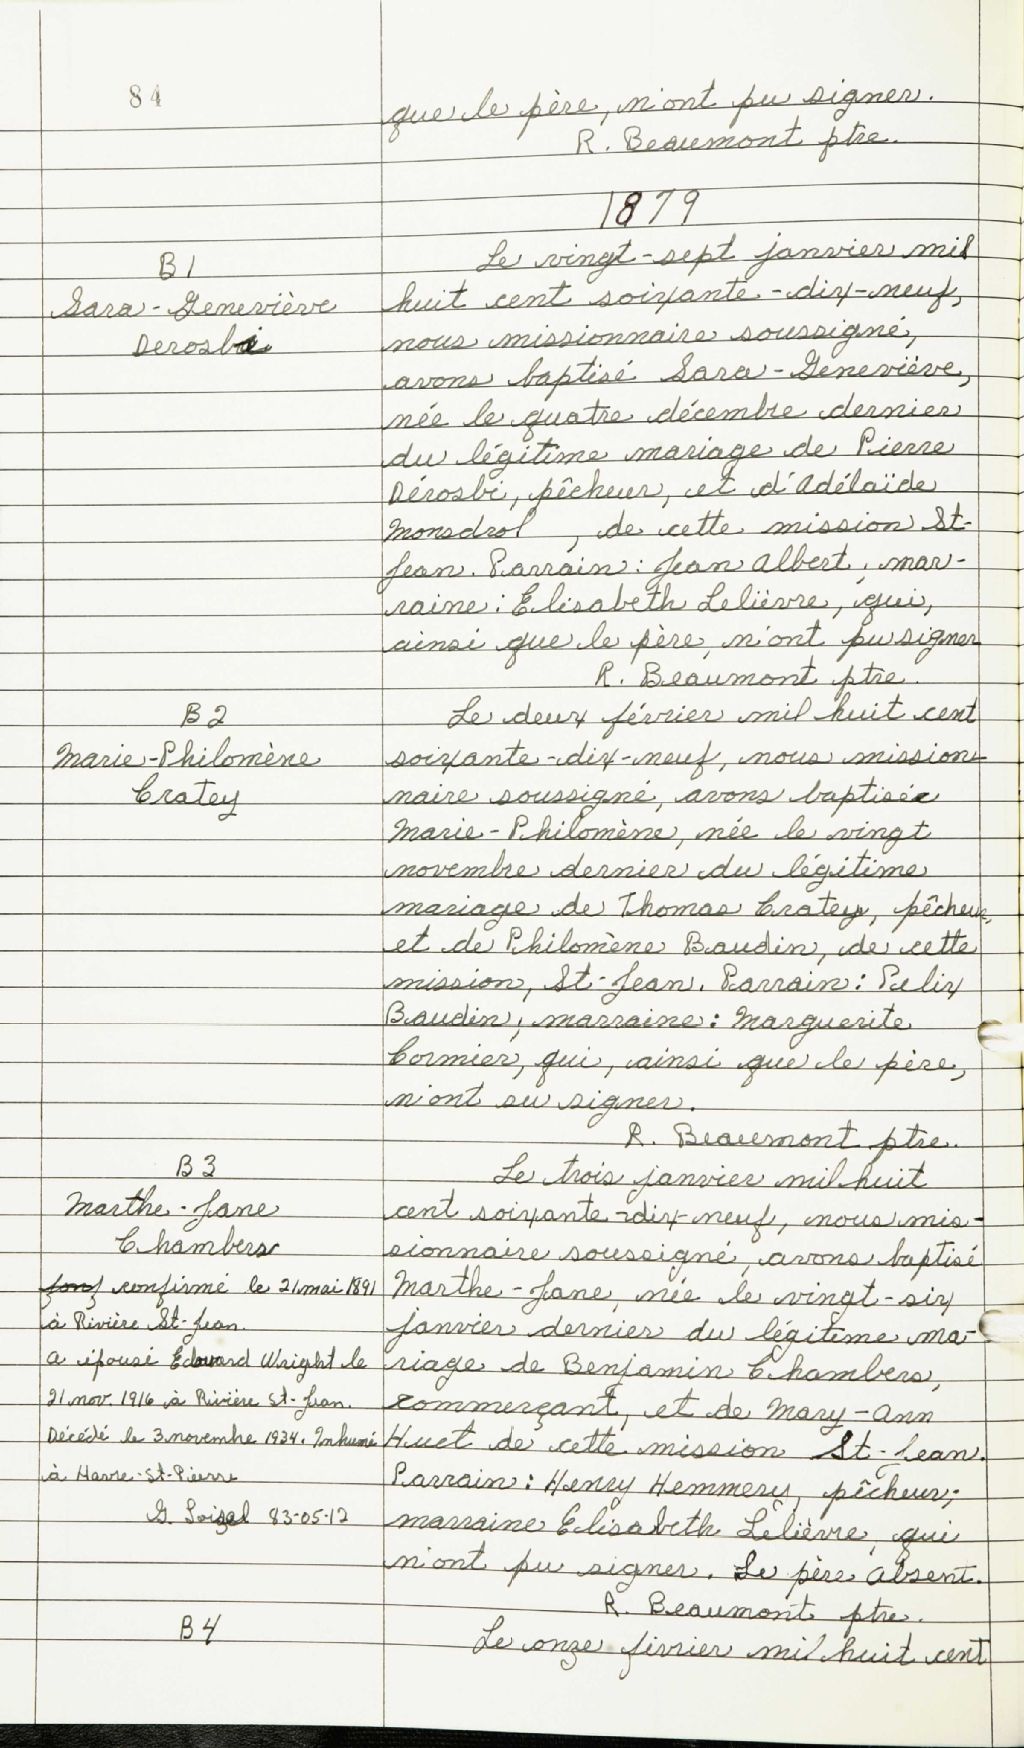 84
que le père, n'ont pu signer.
R. Beaumont ptre.
1879
B1
Sara-Geneviève
Derosbi
Le vingt-sept janvier mil
huit cent soixante-dix-neuf,
nous missionnaire soussigné,
avons baptisé Sara-Geneviève,
née le quatre décembre dernier
du légitime mariage de Pierre
Dérosbi, pêcheur, et d'Adélaïde
Monsdrol, de cette mission St-
Jean. Parrain: Jean Albert, mar-
raine: Elisabeth Lelièvre, qui,
ainsi que le père, n'ont pu signer
R. Beaumont ptre.
B2
Marie-Philomène
Cratey
Le deux février mil huit cent
soixante-dix-neuf, nous mission-
naire soussigné, avons baptisée
Marie-Philomène, née le vingt
novembre dernier du légitime
mariage de Thomas Cratey, pêcheur,
et de Philomène Baudin, de cette
mission, St-Jean. Parrain: Felix
Baudin, marraine: Marguerite
Cormier, qui, ainsi que le père,
n'ont su signer.
R. Beaumont ptre.
B3
Marthe-Jane
Chambers
confirmé le 21 mai 1891
à Rivière St-Jean.
a épousé Edouard Wright le
21 nov. 1916 à Rivière St-Jean.
Décédé le 3 novembre 1934. Inhumé
à Havre-St-Pierre
G. Loisel 83-05-12
Le trois janvier mil huit
cent soixante-dix-neuf, nous mis-
sionnaire soussigné, avons baptisé
Marthe-Jane, née le vingt-six
janvier dernier du légitime ma-
riage de Benjamin Chambers,
commerçant, et de Mary-Ann
Huet de cette mission St-Jean.
Parrain: Henry Hemmery, pêcheur;
marraine Elisabeth Lelièvre, qui
n'ont pu signer. Le père absent.
R. Beaumont ptre.
B4
Le onze février mil huit cent